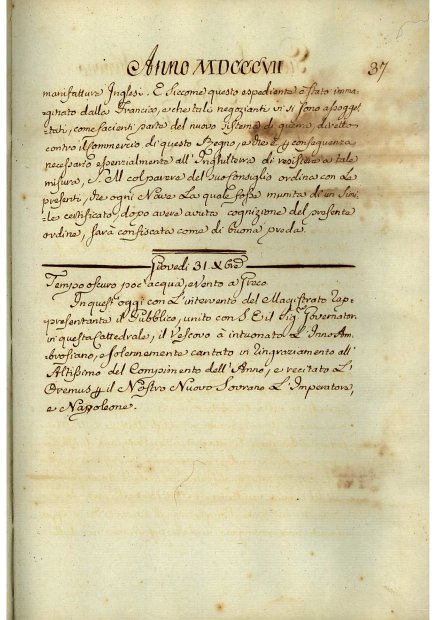 Anno MDCCCVII
37
manifatture Inglesi. E siccome questo espediente è stato imma-
ginato dalla Francia, e che tali negozianti vi si sono assogget-
tati, come facienti parte del nuovo sistema di guerra, diretto
contro il Commercio di questo Regno, e che è per conseguenza
necessario essenzialmente all'Inghilterra di resistere a tale
misura, S. M. col parere del suo Consiglio ordina con Le
presenti, che ogni Nave La quale fosse munita di un Simi-
le certificato, dopo avere avuta cognizione del presente
ordine, sarà confiscata come di buona preda.
Giovedi 31. Xbre
Tempo oscuro poc' acqua, e vento a Greco
In quest' oggi con L'intervento del Magistrato Rap-
presentante il Pubblico, unito con S E il Sig Governator
in questa Cattedrale, il Vescovo à intuonato L'Inno Am-
brosiano, e solennemente cantato in ringraziamento all'
Altissimo del Compimento dell'Anno, e recitato L'
Oremus per il Nostro Nuovo Sovrano L'Imperatore,
e Napoleone.